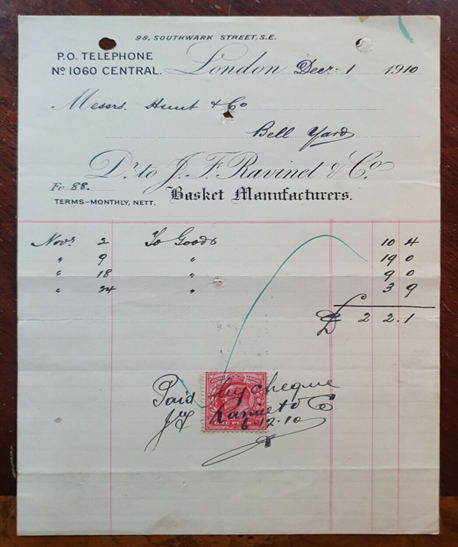 98, SOUTHWARK STREET, S.E.
P.O. TELEPHONE
No 1060 CENTRAL.
London Decr 1 1910
Messrs. Hunt & Co
Bell Yard
Dr. to J. F. Ravinet & Co.
Fo 88.
Basket Manufacturers.
TERMS-MONTHLY, NETT.
Novr 2 To Goods 10 4
" 9 " 19 0
" 18 " 9 0
" 24 " 3 9
£ 2 2.1
Paid by cheque
J F Ravinet & Co
6-12-10